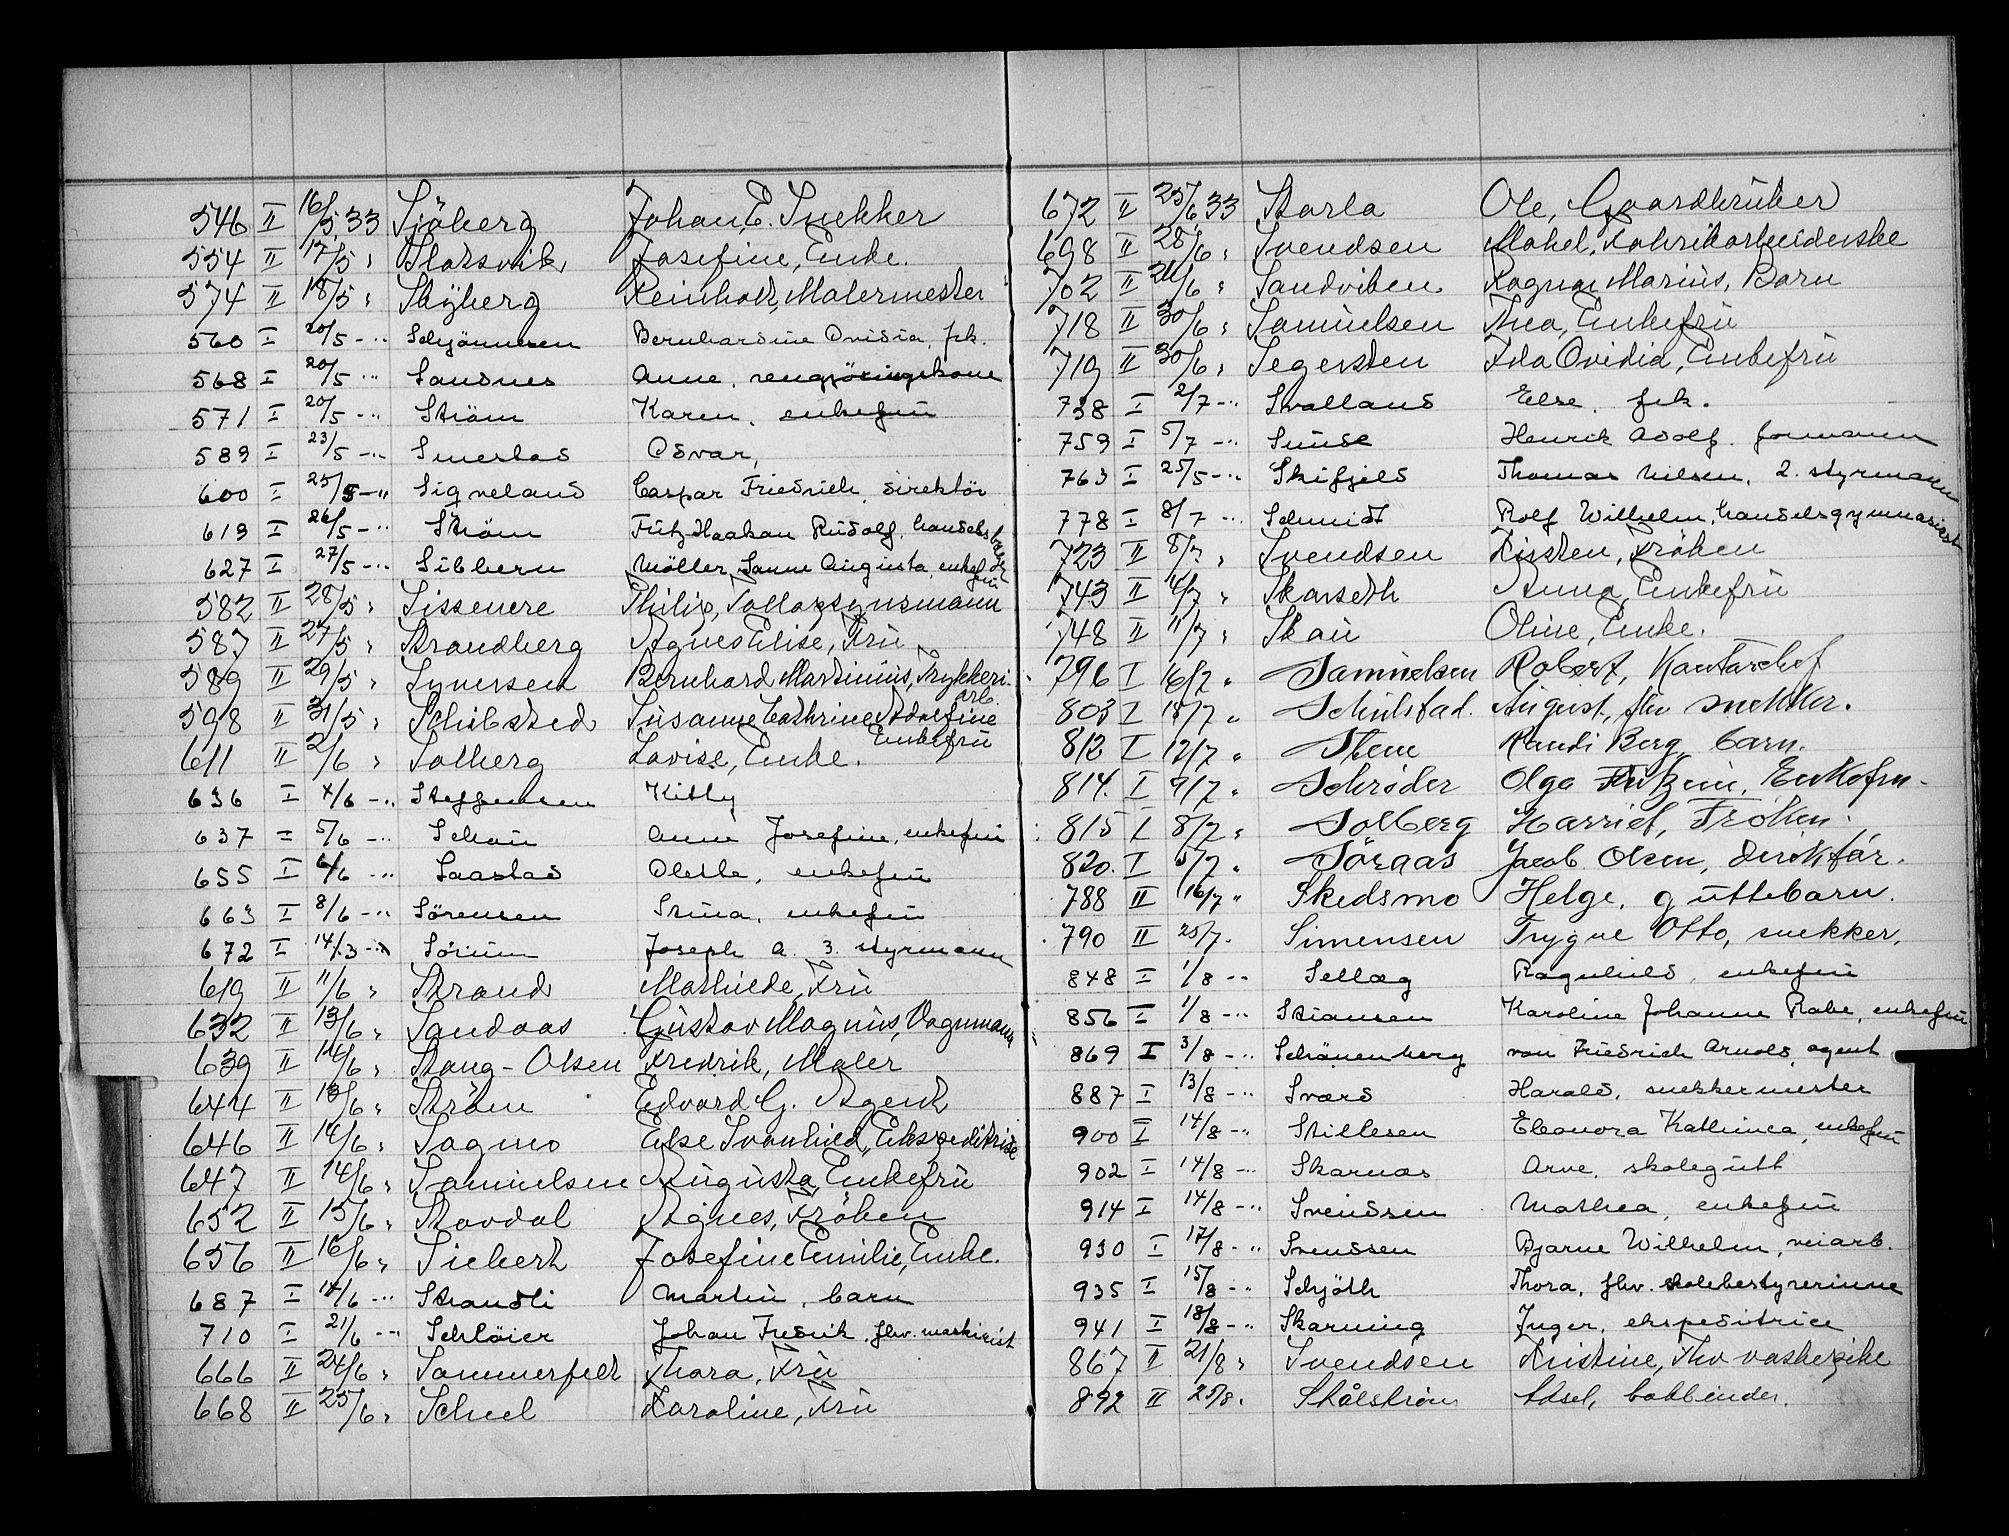 546 II 16/5 33 Sjöberg Johan E. Snekker
554 II 17/5 " Slotsvik Josefine, Enke.
574 II 18/5 " Skyberg Reinholt, Malermester
560 I 20/5 -" Schjönnesen Bernhardine Ovidia, frk.
568 I 20/5 -" Sandnes Anne, rengjöringskone
571 I 20/5 -" Ström Karen, enkefru
589 I 23/5 -" Smestad Osvar,
600 I 25/5 -" Sigveland Caspar Friedrich, direktör
613 I 26/5 -" Ström Fritz Haakon Rudolf, handels
627 I 27/5 -" Sibbern Möller, Janne Augusta, enkefru
582 II 28/5 " Sissenere Philip, Tolloppsynsmann
587 II 27/5 " Strandberg Agnes Elise, Fru
589 II 29/5 " Syversen Bernhard Martinius, Trykkeri-
arb.
598 II 31/5 " Schibsted Susanne Cathrine Adolfine
Enkefru
611 II 2/6 " Solberg Lovise, Enke.
636 I 4/6 -" Steffensen Kitty
637 I 5/6 -" Schau Anne Josefine, enkefru
655 I 6/6 -" Saastad Oletta, enkefru
663 I 8/6 -" Sörensen Stina, enkefru
672 I 14/3 -" Sörum Joseph A. 3. styrmann
619 II 11/6 " Strand Mathilde, Fru
632 II 13/6 " Sandaas Gustav Magnus, Vognmann
639 II 14/6 " Stang-Olsen Fredrik, Maler
644 II 13/6 " Ström Edvard G. Agent
646 II 14/6 " Sogmo Else Svanhild, Ekspeditrise
647 II 14/6 " Samuelsen Augusta, Enkefru
652 II 15/6 " Stovdal Agnes, Fröken
656 II 16/6 " Siebert Josefine Emilie, Enke.
687 I 14/6 -" Strandli Martin, barn
710 I 21/6 -" Schlöier Johan Fredrik, fhv. maskinist
666 II 24/6 " Sommerfelt Thora, Fru
668 II 25/6 " Scheel Karoline, Fru
672 II 25/6 33 Storla Ole, Gaardbruker
698 II 28/6 " Svendsen Mabel, Fabrikarbeiderske
702 II 26/6 " Sandviken Ragnar Marius, Barn
718 II 30/6 " Samuelsen Thea, Enkefru
719 II 30/6 " Segersten Ida Ovidia, Enkefru
738 I 2/7 -" Svalland Else, frk.
759 I 5/7 -" Sunde Henrik Adolf, formann
763 I 25/5 -" Skifjeld Thomas Nilsen, 2. styrmann
778 I 8/7 -" Schmidt Rolf Wilhelm, handelsgymnasiast
723 II 8/7 " Svendsen Kissten, Fröken
743 II 4/7 " Skarseth Anna, Enkefru
748 II 11/7 " Skau Oline, Enke.
796 I 16/7 " Samuelsen Robert, Kontorchef
803 I 18/7 " Schulstad. August, fhv snekker.
812 I 12/7 " Stene Randi Berg, barn.
814. I 9/7 " Schrøder Olga, Enkefru.
815 I 8/7 " Solberg Harriet, Frøken.
820. I 5/7 " Söraas Jacob Olsen, direktør.
788 II 16/7 " Skedsmo Helge, guttebarn.
790 II 25/7. Simensen Trygve Otto, snekker.
848 I 1/8 -" Sellæg Ragnhild, enkefru
856 I 1/8 -" Stiansen Karoline Johanne Rabe, enkefru
869 I 3/8 -" Schönenberg von Friedrich Arnold, agent
887 I 13/8 -" Sværd Harald, snekkermester
900 I 14/8 -" Stillesen Eleonora Kathinca, enkefru
902 I 14/8 -" Skarnas Arve, skolegutt
914 I 14/8 -" Svendsen Mathea, enkefru
930 I 17/8 -" Svendsen Bjarne Wilhelm, veiarb.
935 I 15/8 -" Schjöth Thora, fhv. skolebestyrerinne
941 I 18/8 -" Skarning Inger, ekspeditrice
867 II 21/8 " Svendsen Kristine, Fhv vaskepike
892 II 25/8. Skålström Aksel, bokbinder.